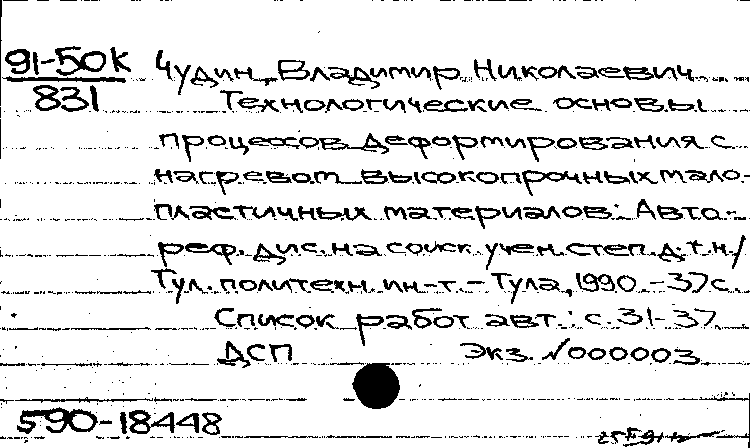 91-50К Чудин, Владимир Николаевич
831 Технологические основы
процессов деформирования с
нагревом высокопрочных мало-
пластичных материалов: Авто-
реф. дис. на соиск. учен. степ. д.т.н./
Тул. политехн. ин-т. - Тула, 1990. - 37с.
Список работ авт.: с. 31-37
ДСП Экз. №000003
590-18448